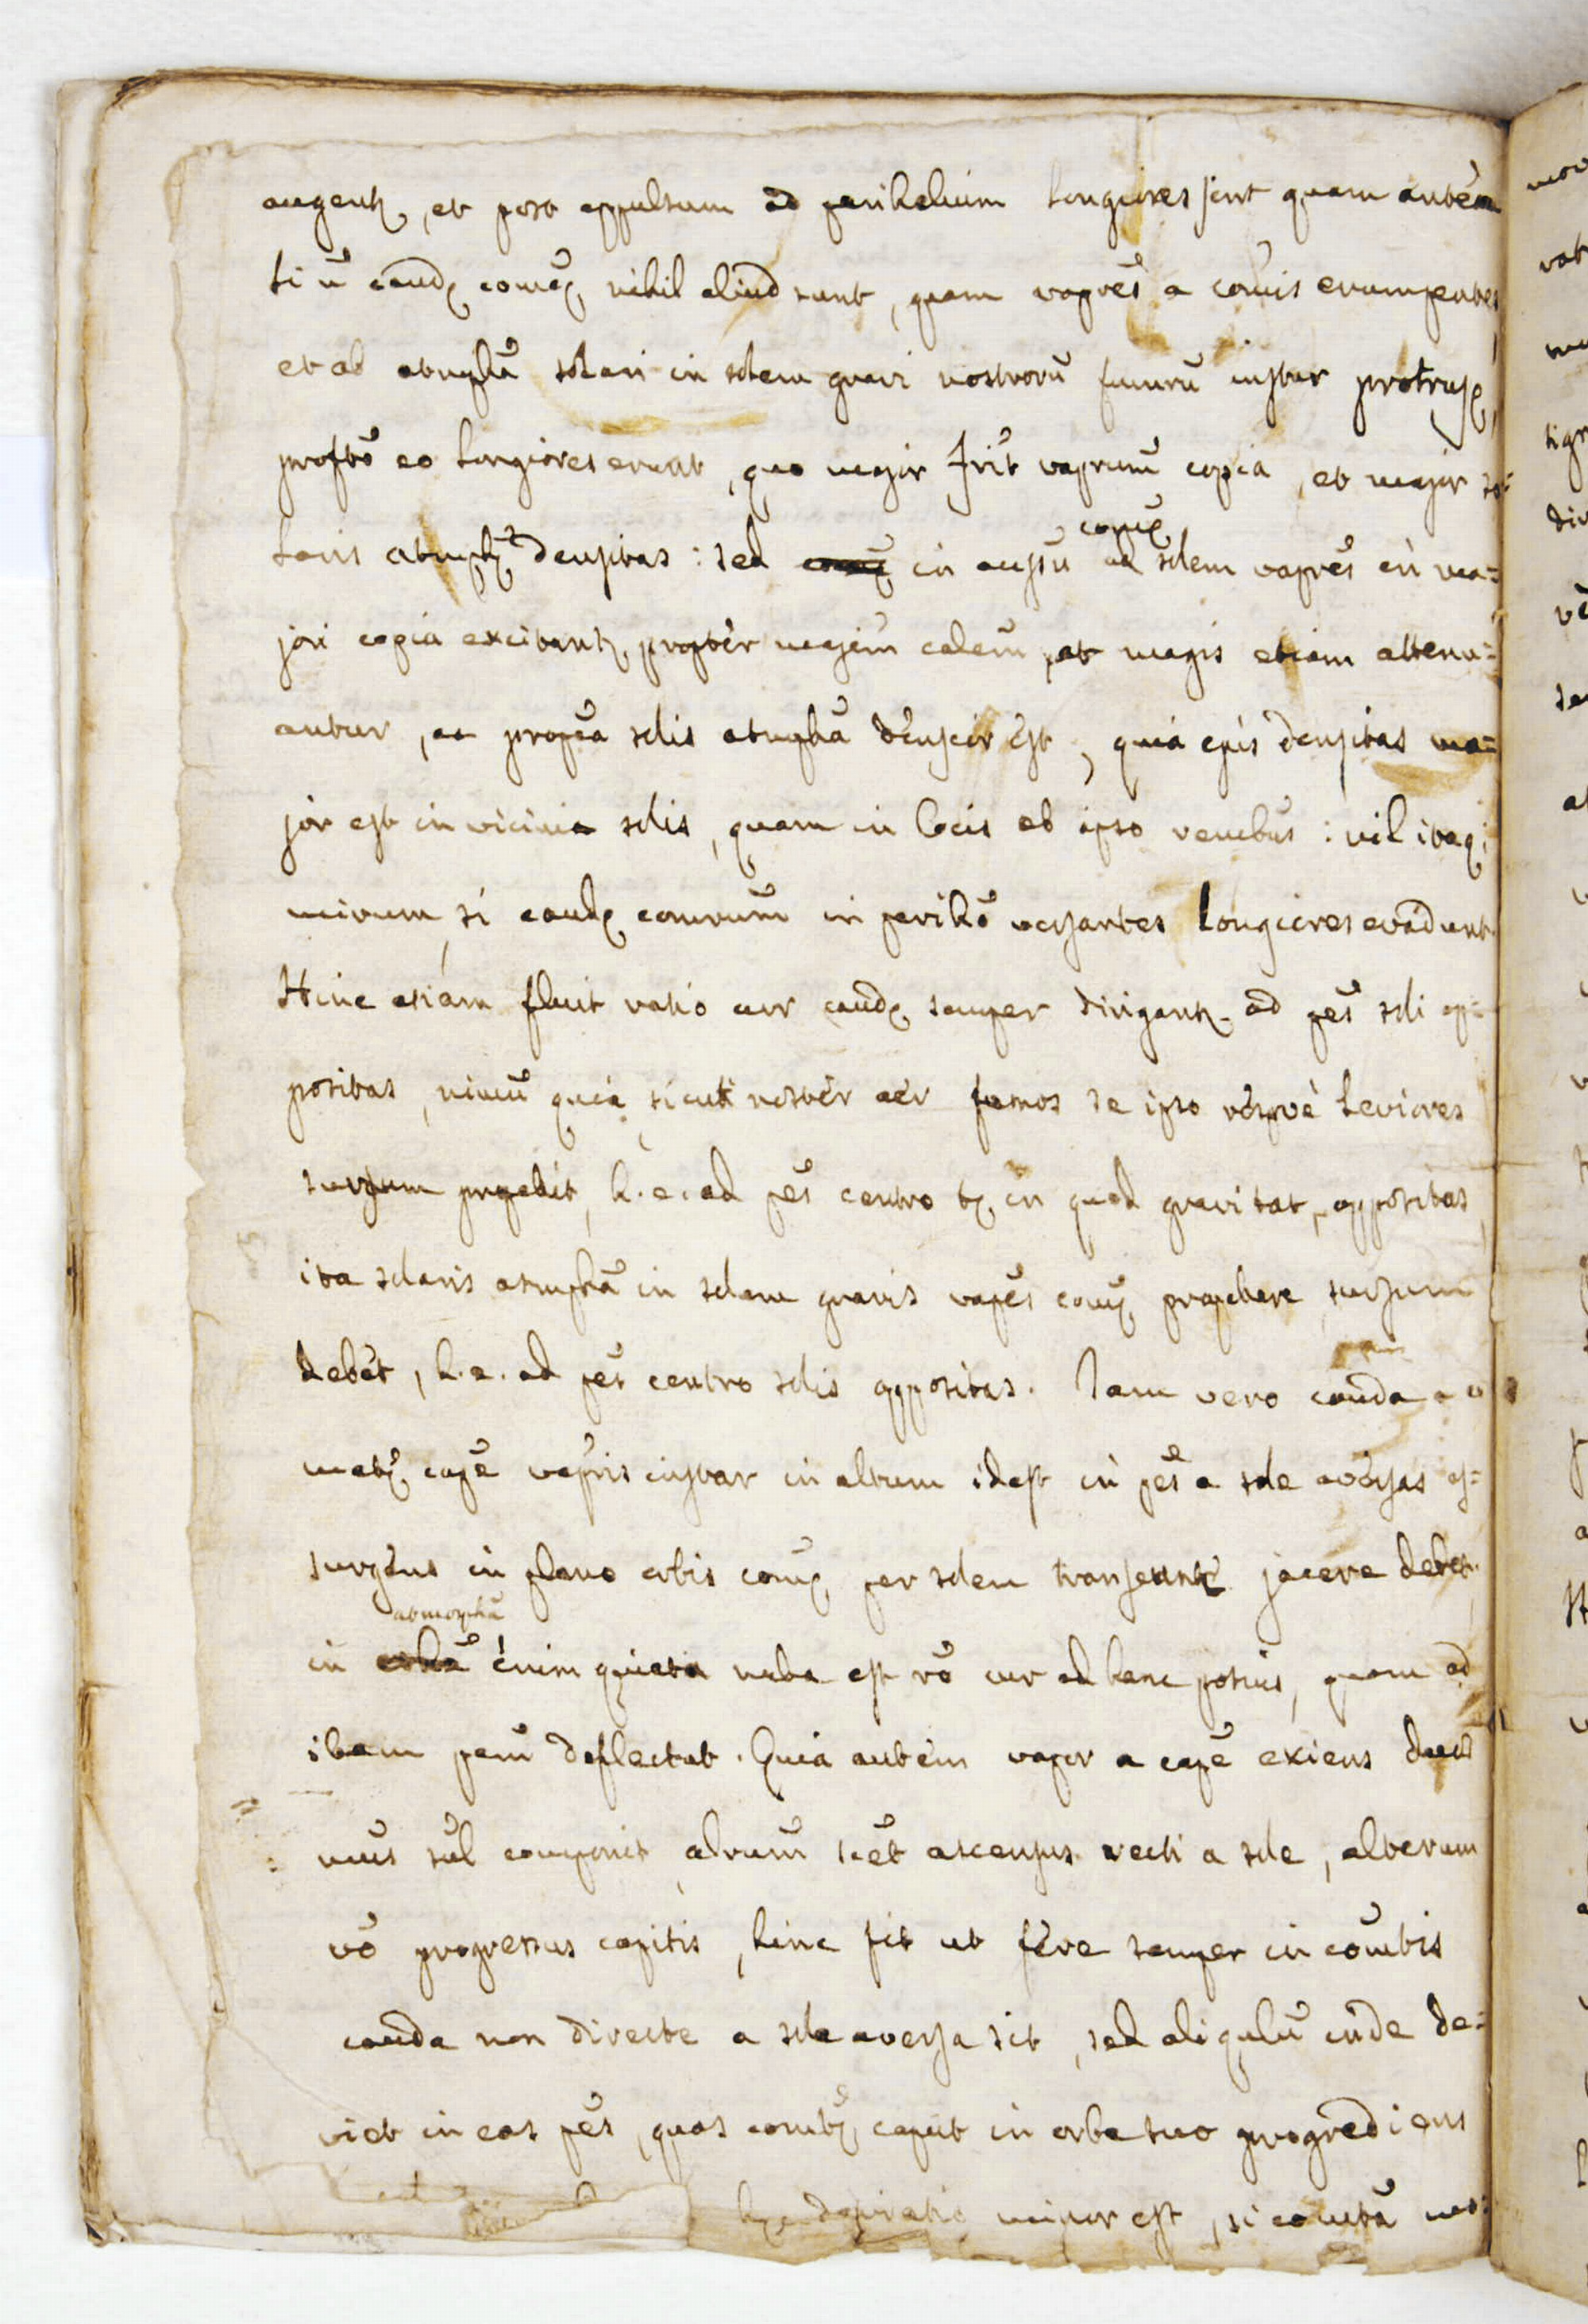 augentꝫ, et post appulsum ad perihelium longiores sint quam antea
Si n̄ caudę comeę nihil aliud sunt, quam vapōēs a comis erumpentes
et ab atmphā solari in solem gravi nostrorū fumorū instar protrusę,
profō eo longiores erunt, quo major fūīt vaporum̄ copia, et major so-
laris atmphę densitas: sed in accessū comeę ad solem vaprēs eū ma=
jori copia excitantꝫ propter majem̄ calem̄, et magis etiam attenu=
antur, ac propea solis atmphā densior est, quia ejus densitas ma=
jor est in vicinia solis, quam in locis ab ipso remotibus: nil itaq;
mirum, si caudę comarum̄ in perihō versantes longiores evadunt.
Hinc etiam fluit ratio cur caudę semper dirigantꝫ ad pēs soli op=
positas, nimū quia sicuti noster aer fumos se ipso respvè leviores
sursum propellit, h.e. ad pēs centro tę in quod gravitat, oppositas,
ita solaris atmphā in solem gravis vapēs comę propellere sursum
debet, h.e. ad pēs centro solis oppositas. Jam vero cauda a co
metę capē vaporis instar in altum idest in pēs a sole aversas as=
surgens in plano orbis comę per solem transeuntꝫ jacere debet.
in atmosphā enim quieta nulla est rō cur ad hanc potius, quam ad
illam pem̄ deflectat. Quia autem vapor a capē exiens duos
mūs sūl componit, alrum̄ scēt ascensus recti a sole, alterum
vō progressus capitis, hinc fit ut fere semper in comētis
cauda non directe a sole aversa sit, sed aliqulū inde de=
viet in eas pēs, quas cometꝫ caput in orbe suo progrediens
deviatio minor est, si cometa